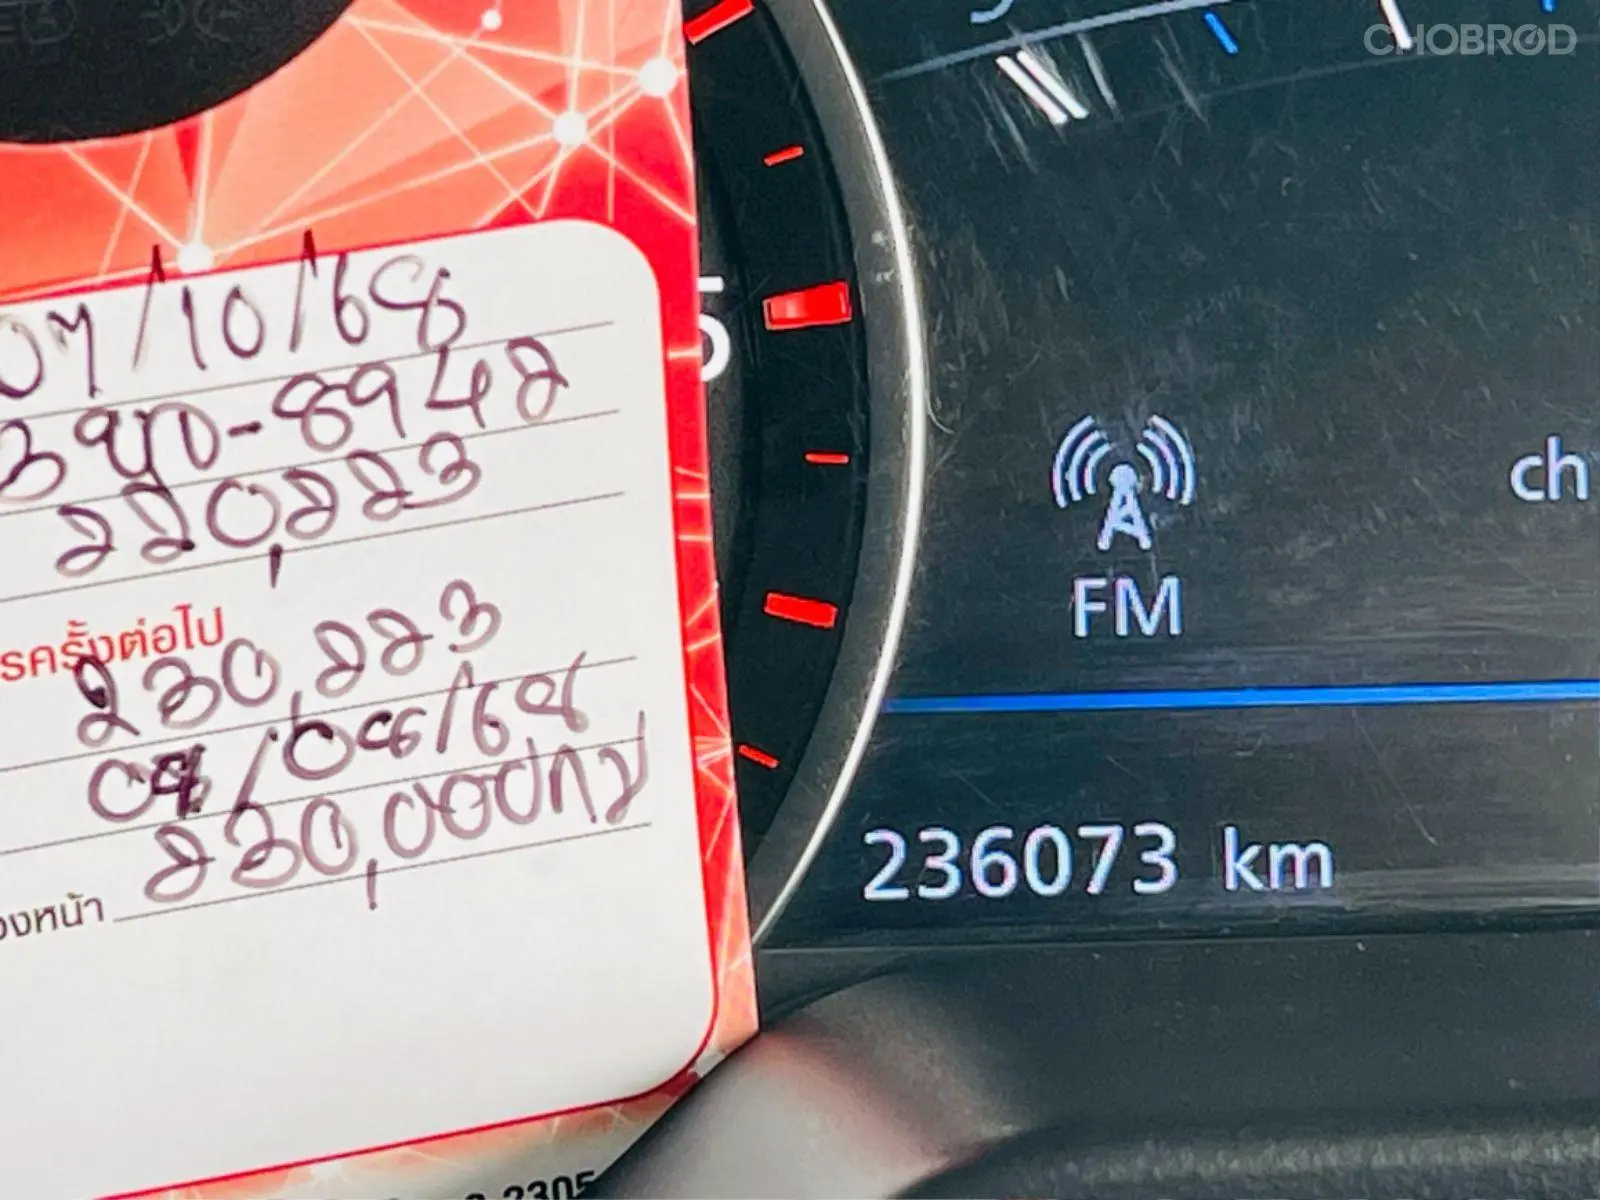 CHOBROD
07/10/68
3ขฒ-8942
220,223
รครั้งต่อไป
230,223
230,000กม
องหน้า
2305
5
FM
ch
236073 km